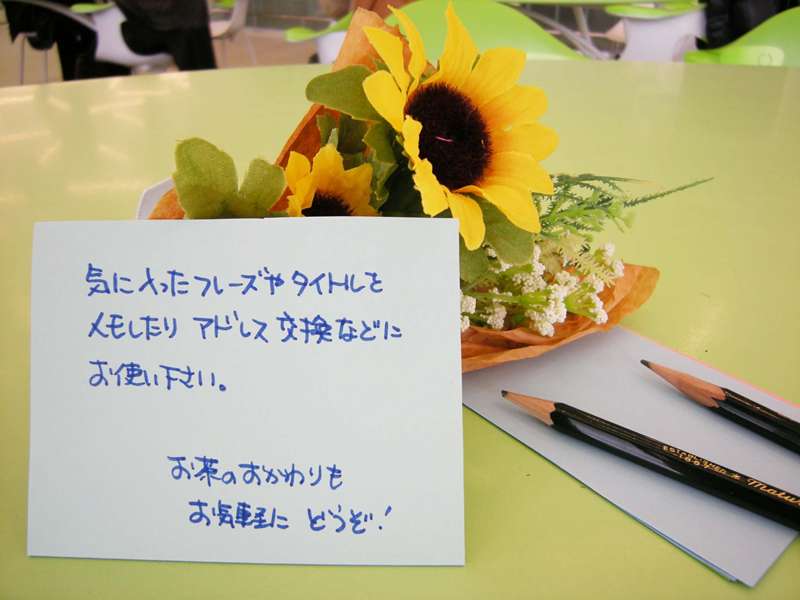 気に入ったフレーズやタイトルを
メモしたり アドレス交換などに
お使い下さい。
お茶のおかわりも
お気軽に どうぞ!